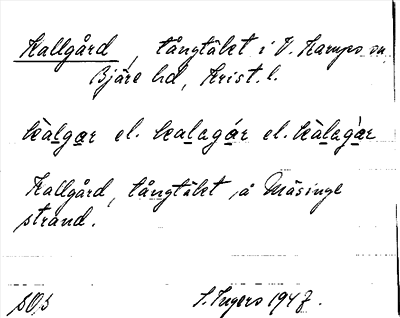 Kallgård, tångtäkt i V. Karups sn,
Bjäre hd, Krist. l.
kàlgar el. kalagár el. kàlagàr
Kallgård, tångtäkt å Mäsinge
strand.
S. Ingers 1947.